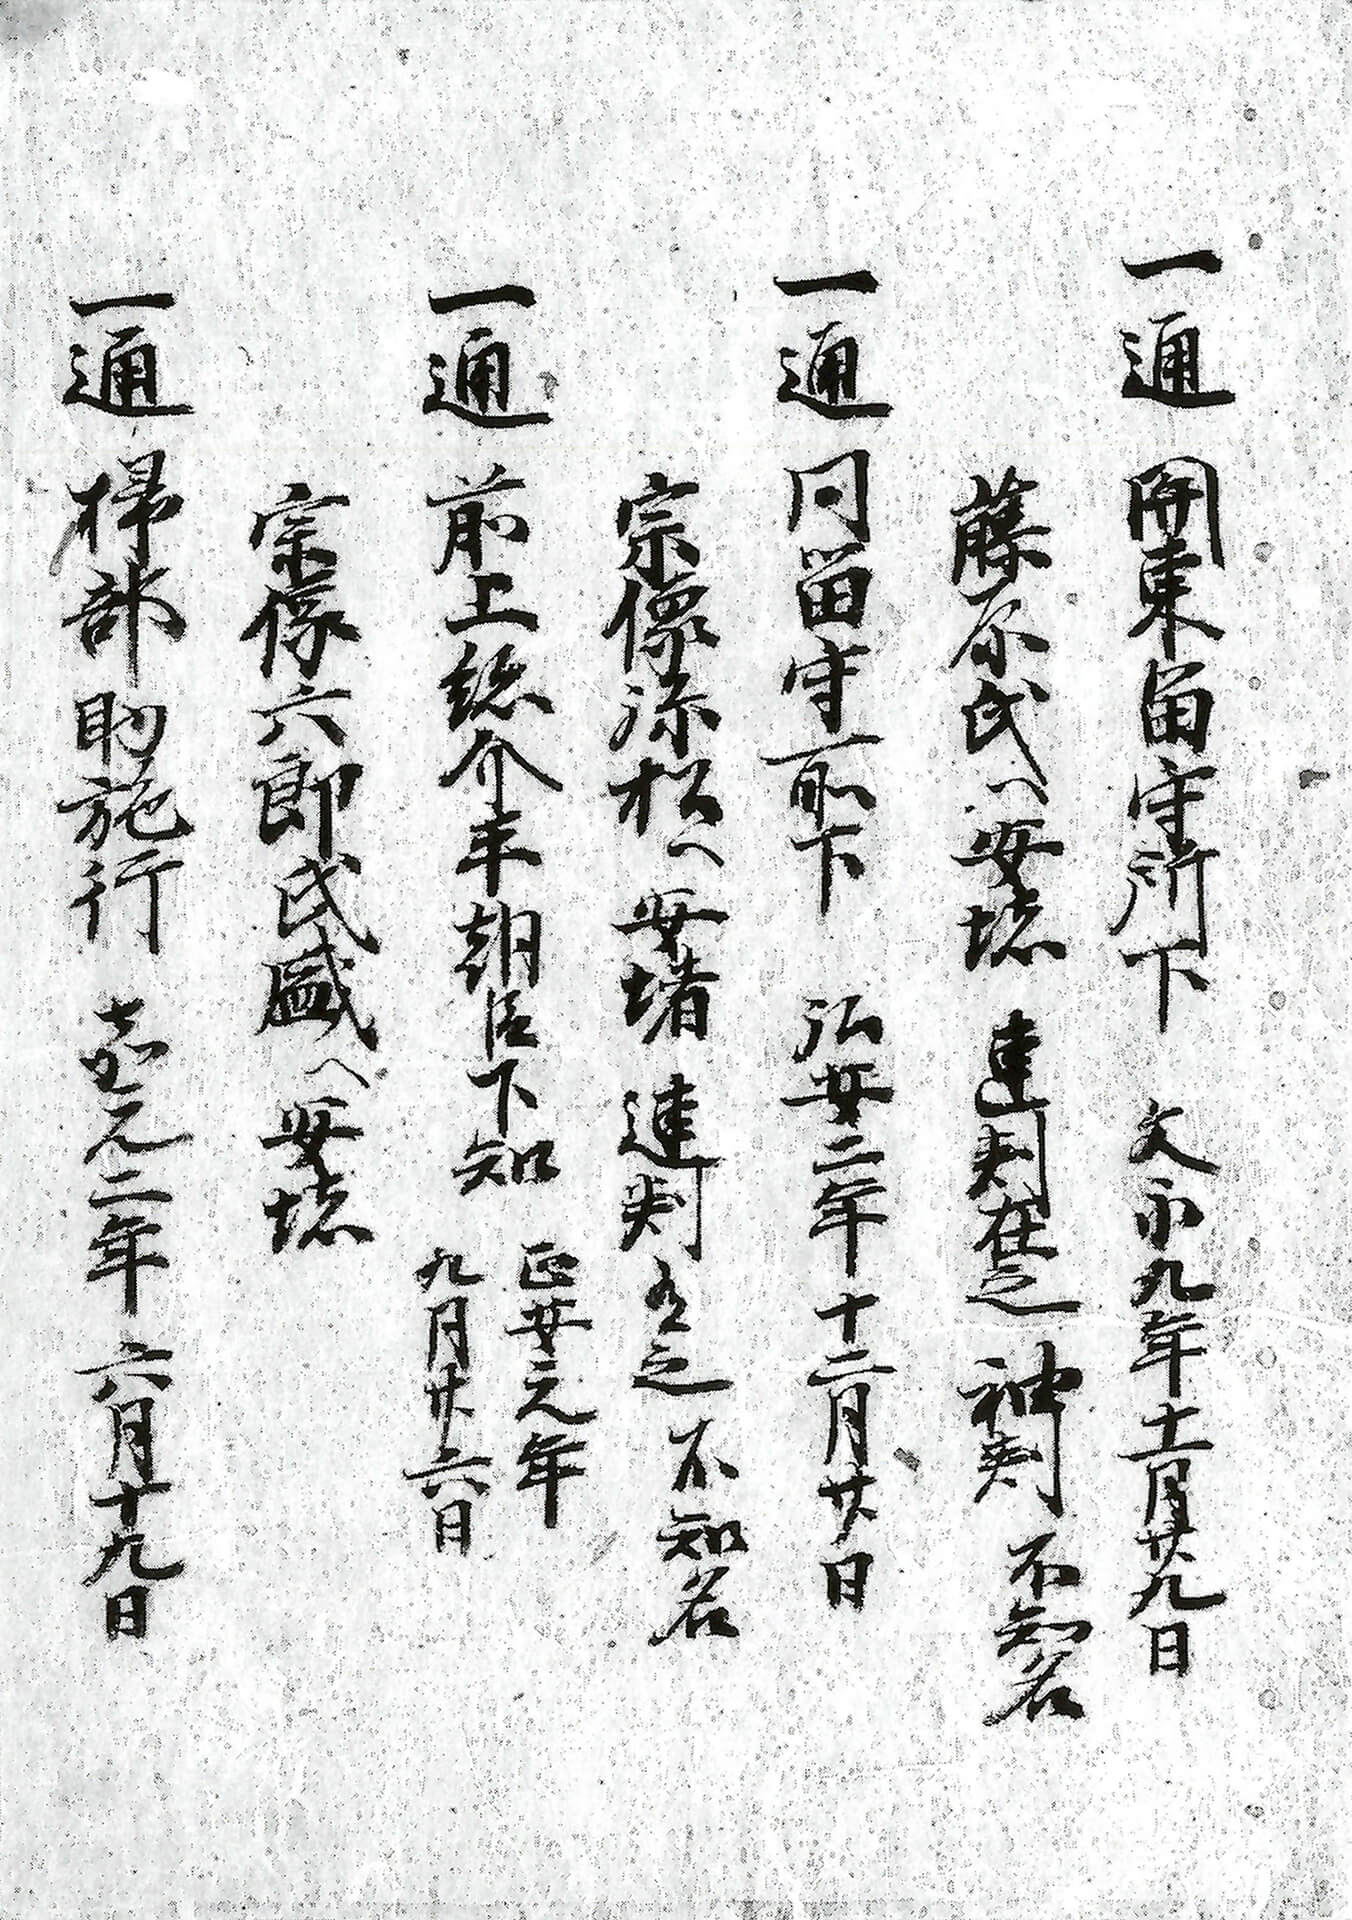 一通 関東留守所下 文永九年十一月廿九日
藤原氏へ安堵 連判在之 神判 不知名
一通 同留守所下 弘安二年十二月廿日
宗像孫松へ安堵 連判有之 不知名
一通 前上総介平朝臣下知 正安元年
九月廿六日
宗像六郎氏盛へ安堵
一通 掃部助施行 嘉元二年六月十九日